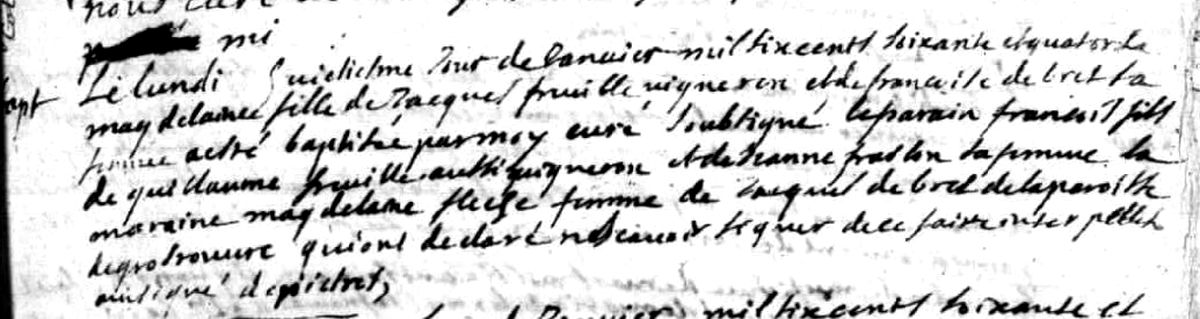 nous
mi
bapt Le lundi huictiesme Jour de Januier mil sixcents soixante et quatorze
magdelainee fille de Jacques fruille uigneron et de francoise de bret sa
femme a esté baptisée par moy curé soubsigné le parain francois fils
de guillaume fruille aussi uigneron et de Jeanne frallon sa femme la
maraine magdelaine femme de Jacques de bret de la paroisse
de grotrouure qui ont declaré ne scauoir signer de ce faire interpellés
ont signé
Januier mil sixcents soixante et